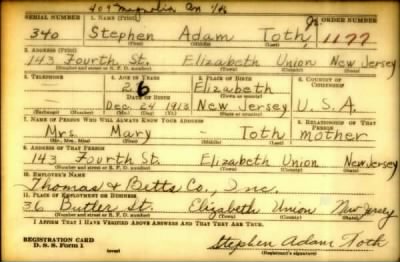 409 Magnolia Av
SERIAL NUMBER 1. NAME (Print) ORDER NUMBER
340 Stephen Adam Toth, Jr. 1177
(First) (Middle) (Last)
2. ADDRESS (Print)
143 Fourth St. Elizabeth Union New Jersey
(Number and street or R. F. D. number) (Town) (County) (State)
3. TELEPHONE 4. AGE IN YEARS 5. PLACE OF BIRTH 6. COUNTRY OF CITIZENSHIP
— 26 Elizabeth
DATE OF BIRTH (Town or county)
— Dec. 24 1913 New Jersey U.S.A.
(Exchange) (Number) (Mo.) (Day) (Yr.) (State or country)
7. NAME OF PERSON WHO WILL ALWAYS KNOW YOUR ADDRESS 8. RELATIONSHIP OF THAT PERSON
Mrs. Mary — Toth mother
(Mr., Mrs., Miss) (First) (Middle) (Last)
9. ADDRESS OF THAT PERSON
143 Fourth St. Elizabeth Union New Jersey
(Number and street or R. F. D. number) (Town) (County) (State)
10. EMPLOYER'S NAME
Thomas & Betts Co., Inc.
11. PLACE OF EMPLOYMENT OR BUSINESS
36 Butler St. Elizabeth Union New Jersey
(Number and street or R. F. D. number) (Town) (County) (State)
I AFFIRM THAT I HAVE VERIFIED ABOVE ANSWERS AND THAT THEY ARE TRUE.
REGISTRATION CARD
D. S. S. Form 1 (over) Stephen Adam Toth
(Registrant's signature)